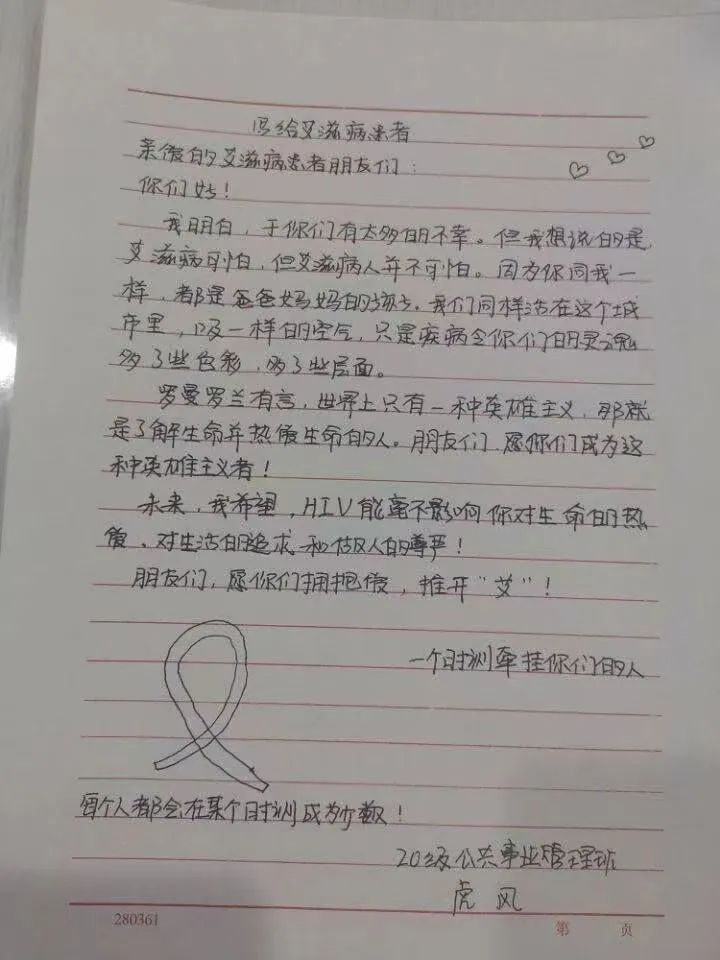 写给艾滋病患者
亲爱的艾滋病患者朋友们:
你们好!
我明白,于你们有太多的不幸。但我想说的是,
艾滋病可怕,但艾滋病人并不可怕。因为你同我一
样,都是爸爸妈妈的孩子.我们同样活在这个城
市里,吸一样的空气,只是疾病令你们的灵魂
多了些色彩,多了些层面。
罗曼罗兰有言,世界上只有一种英雄主义,那就
是了解生命并热爱生命的人。朋友们,愿你们成为这
种英雄主义者!
未来,我希望,HIV能毫不影响你对生命的热
爱、对生活的追求、和做人的尊严!
朋友们,愿你们拥抱爱,推开"艾"!
一个时刻牵挂你们的人
每个人都会在某个时刻成为少数!
20级公共事业管理班
虎风
280361
第 页